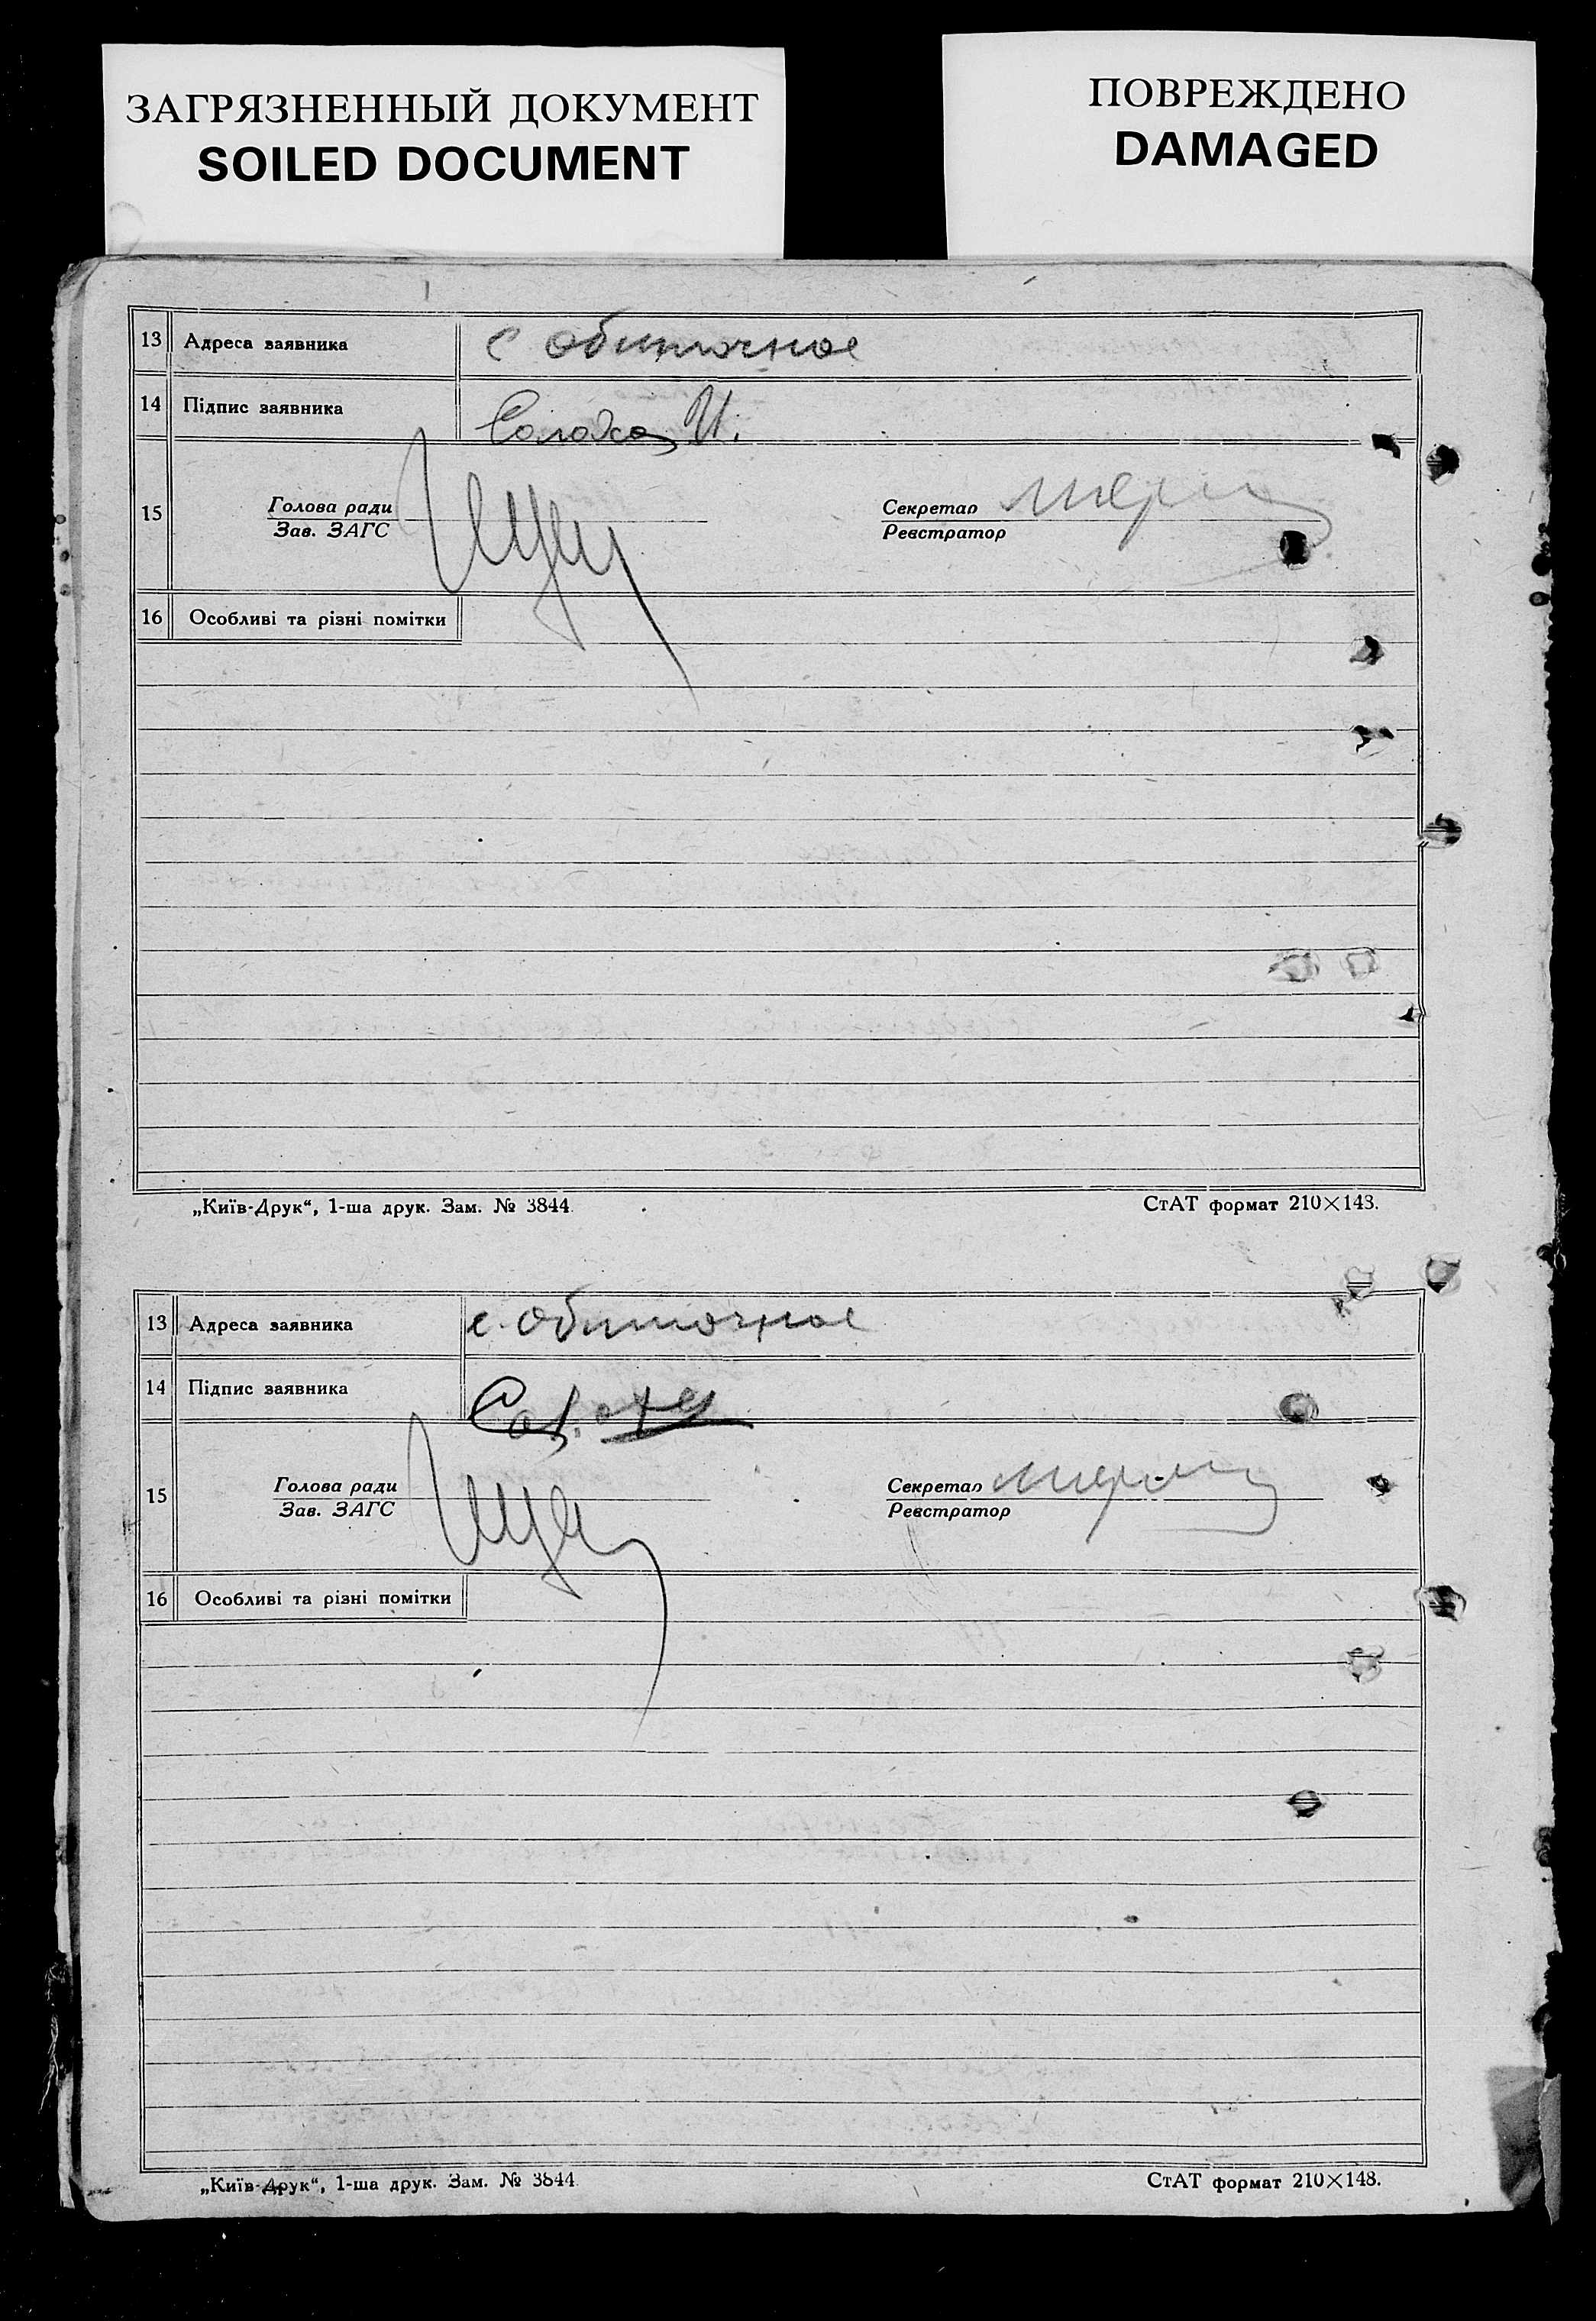 ЗАГРЯЗНЕННЫЙ ДОКУМЕНТ
SOILED DOCUMENT
ПОВРЕЖДЕНО
DAMAGED
13 Адреса заявника с обиточное
14 Підпис заявника И.
15 Голова ради Секретар
Зав. ЗАГС Реєстратор
16 Особливі та різні помітки
„Київ-Друк“, 1-ша друк. Зам. № 3844 СтАТ формат 210×143.
13 Адреса заявника с. Обиточное
14 Підпис заявника
15 Голова ради Секретар
Зав. ЗАГС Реєстратор
16 Особливі та різні помітки
„Київ-Друк“, 1-ша друк. Зам. № 3844 СтАТ формат 210×148.